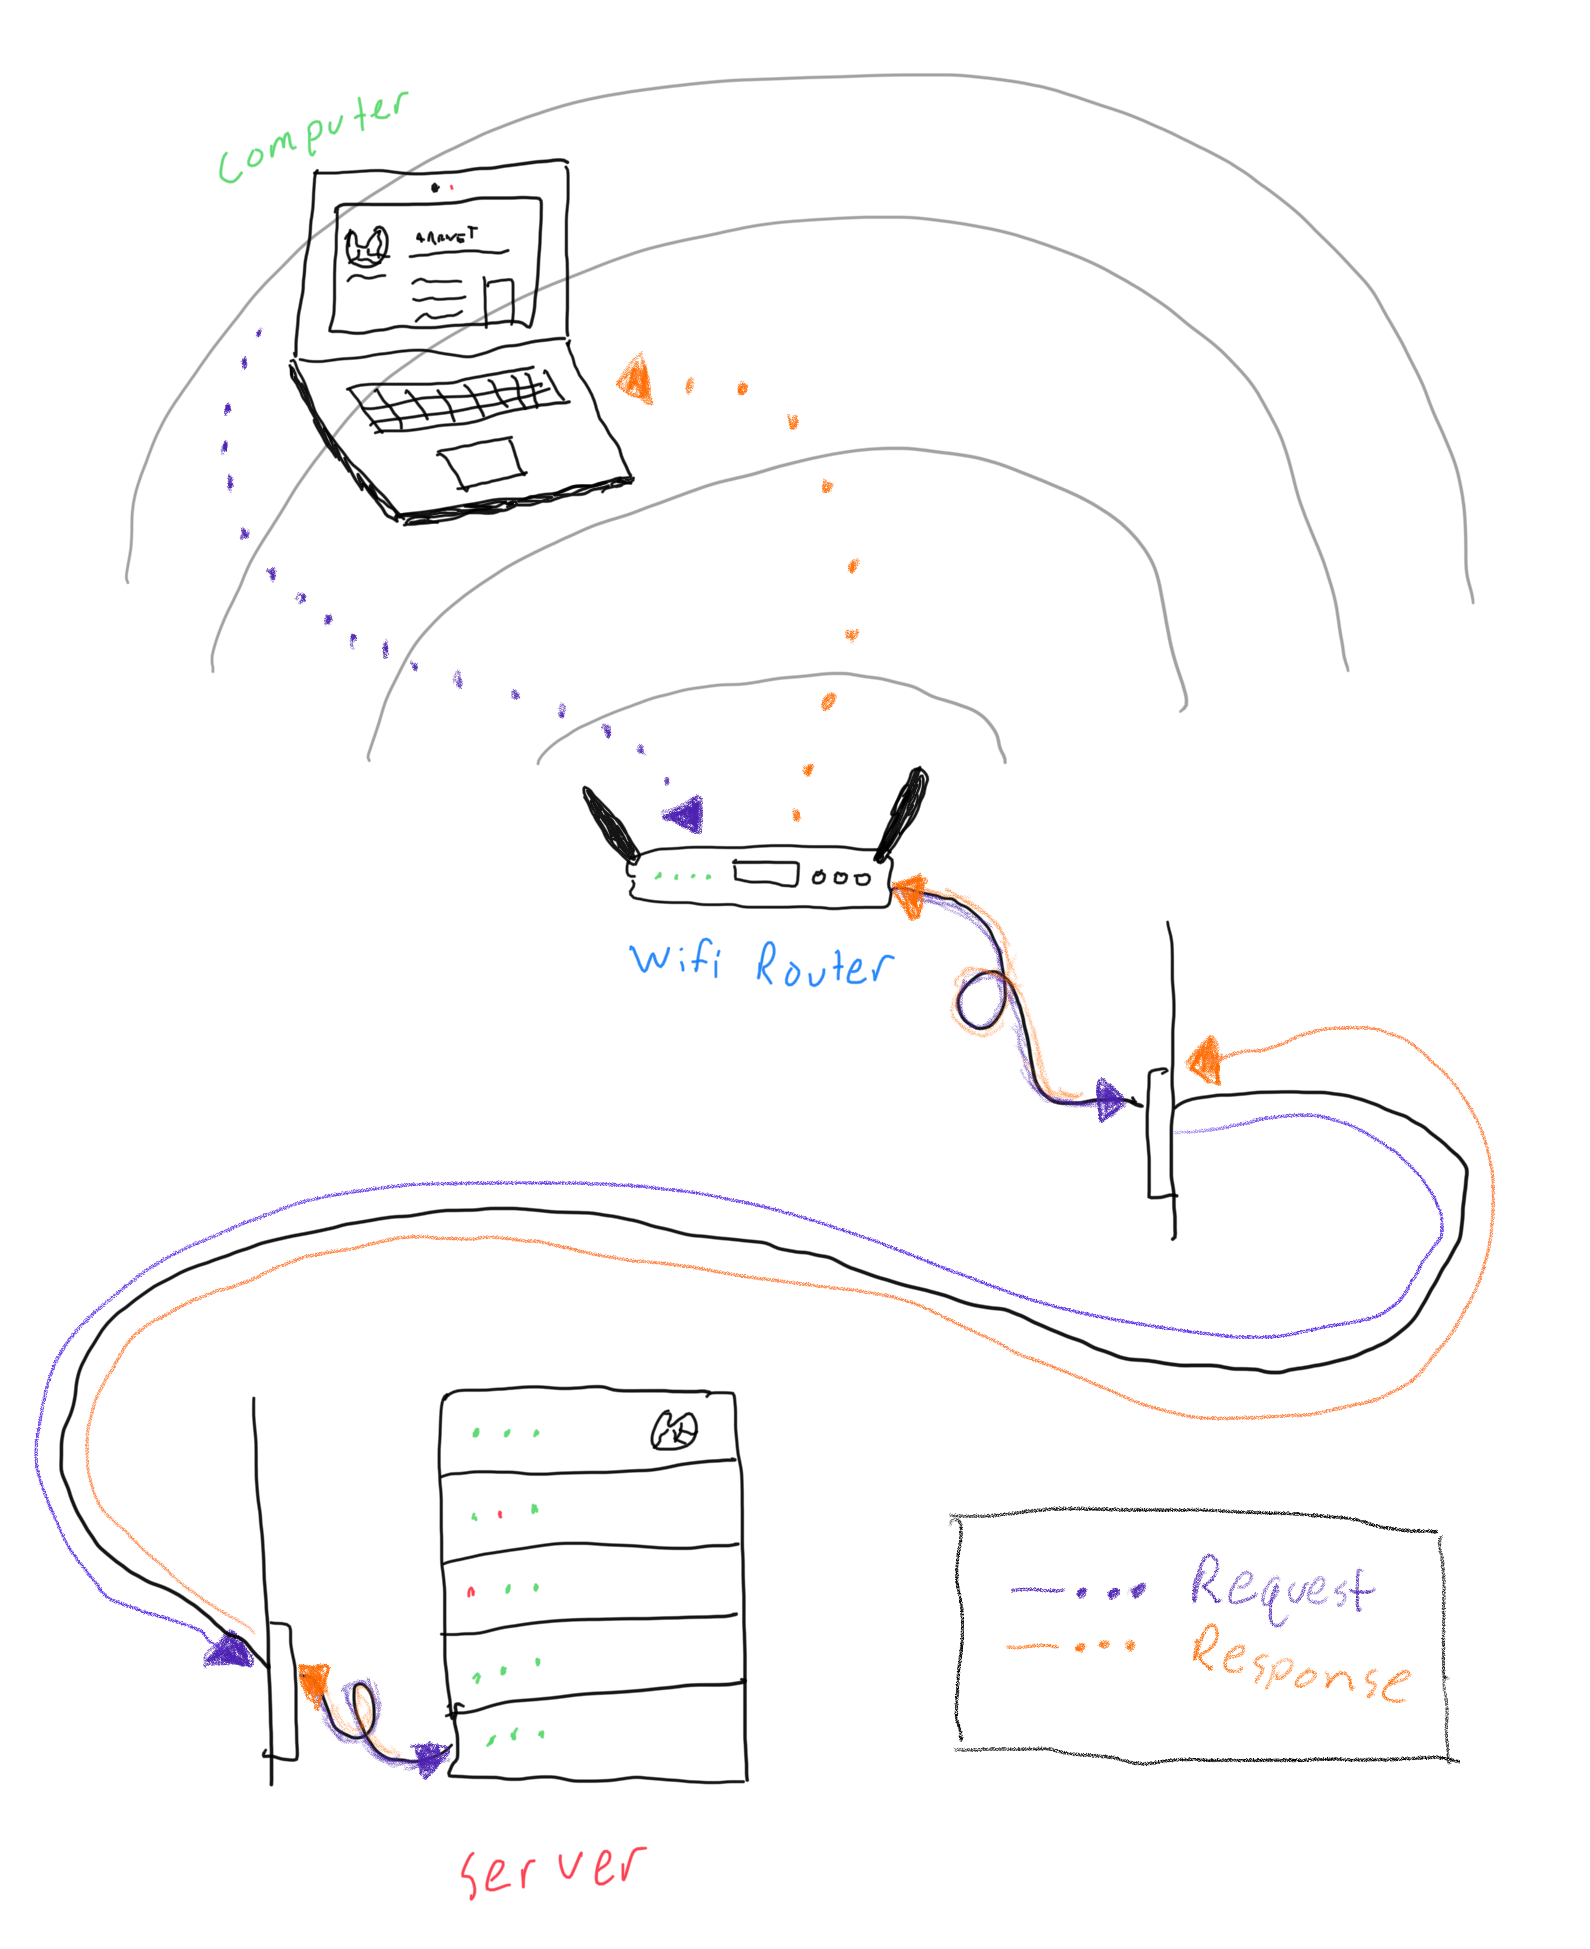 Computer
Wifi Router
Request
Response
Server